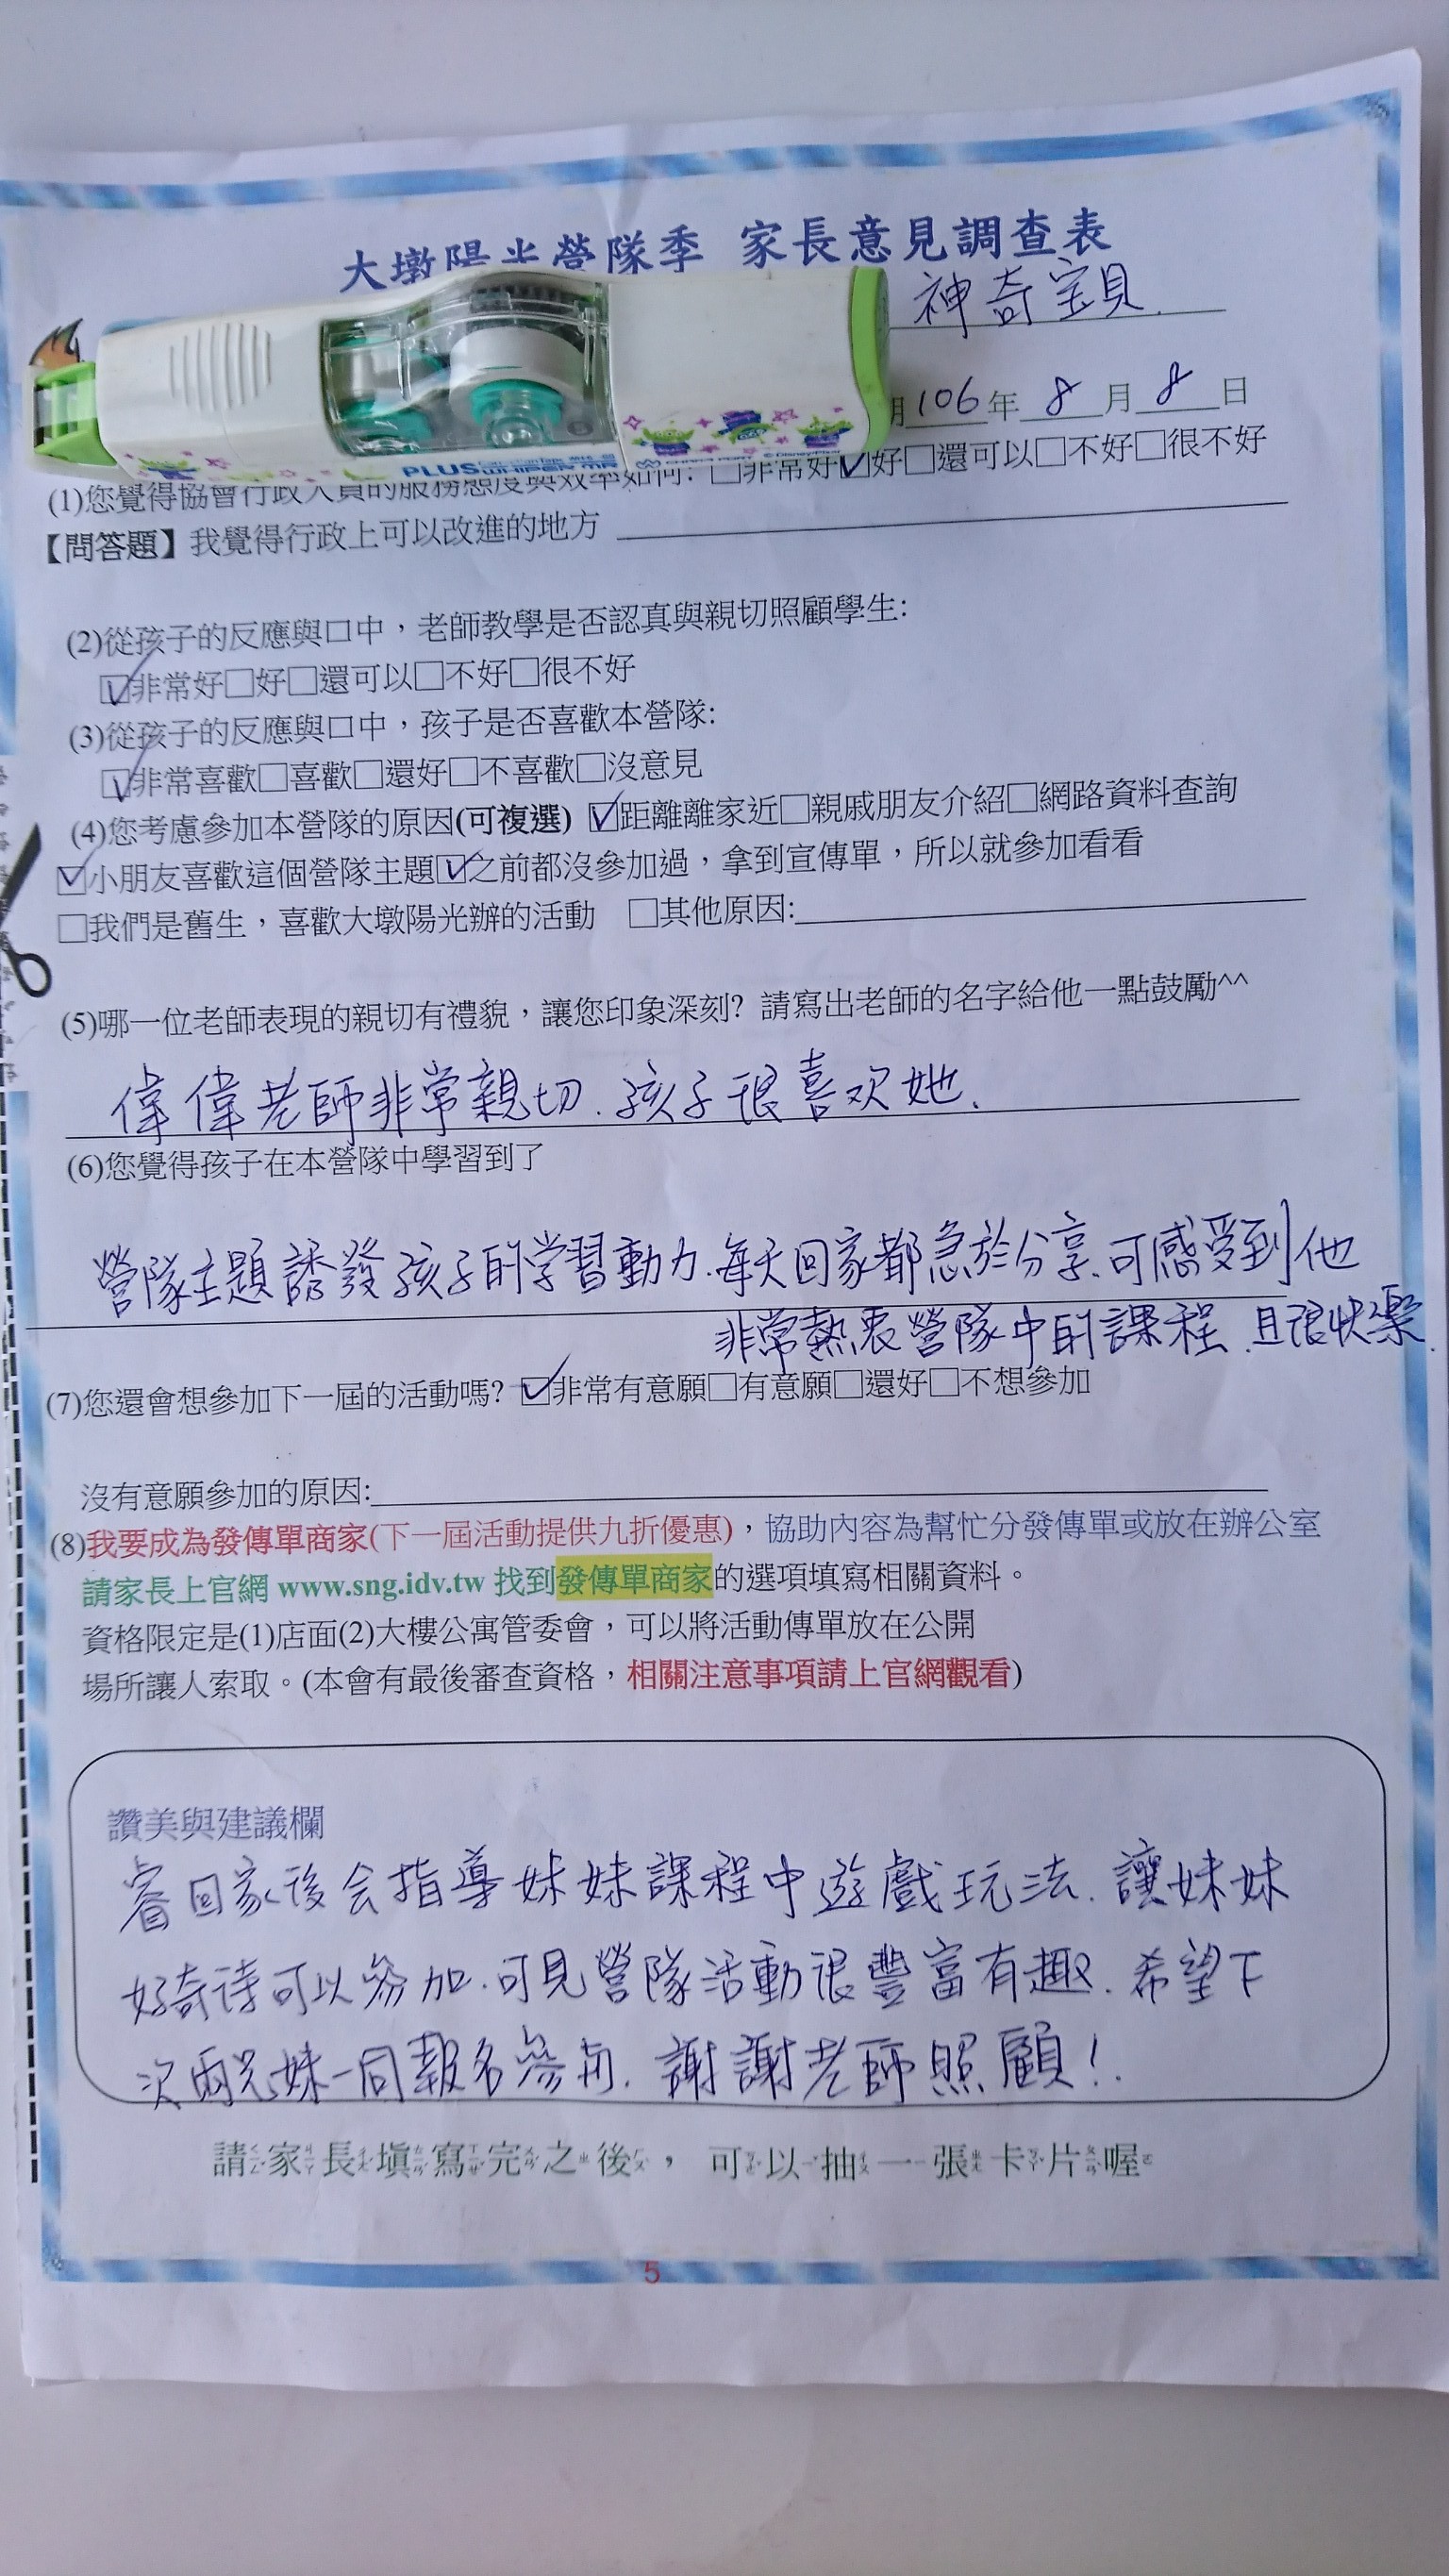 大墩陽光營隊季 家長意見調查表
神奇宝貝.
106年 8 月 8 日
PLUS WHIPER MR
(1)您覺得協會行政人員的服務態度與效率如何: □非常好☑好□還可以□不好□很不好
【問答題】我覺得行政上可以改進的地方
(2)從孩子的反應與口中，老師教學是否認真與親切照顧學生:
☑非常好□好□還可以□不好□很不好
(3)從孩子的反應與口中，孩子是否喜歡本營隊:
☑非常喜歡□喜歡□還好□不喜歡□沒意見
(4)您考慮參加本營隊的原因(可複選) ☑距離離家近□親戚朋友介紹□網路資料查詢
☑小朋友喜歡這個營隊主題☑之前都沒參加過，拿到宣傳單，所以就參加看看
□我們是舊生，喜歡大墩陽光辦的活動 □其他原因:
(5)哪一位老師表現的親切有禮貌，讓您印象深刻? 請寫出老師的名字給他一點鼓勵^^
偉偉老師非常親切.孩子很喜欢她.
(6)您覺得孩子在本營隊中學習到了
營隊主題誘發孩子的学習動力.每天回家都急於分享.可感受到他
非常熱衷營隊中的課程.且很快樂.
(7)您還會想參加下一屆的活動嗎? ☑非常有意願□有意願□還好□不想參加
沒有意願參加的原因:
(8)我要成為發傳單商家(下一屆活動提供九折優惠)，協助內容為幫忙分發傳單或放在辦公室
請家長上官網 www.sng.idv.tw 找到發傳單商家的選項填寫相關資料。
資格限定是(1)店面(2)大樓公寓管委會，可以將活動傳單放在公開
場所讓人索取。(本會有最後審查資格，相關注意事項請上官網觀看)
讚美與建議欄
睿回家後会指導妹妹課程中遊戲玩法.讓妹妹
好奇待可以參加.可見營隊活動很豐富有趣.希望下
次兩兄妹一同報名參與.謝謝老師照顧!.
請家長填寫完之後，可以抽一張卡片喔
5